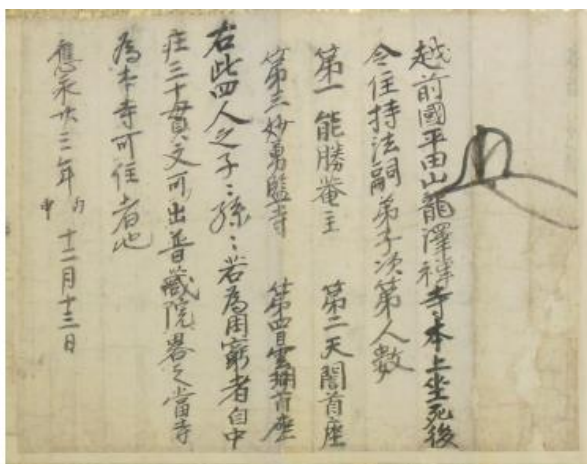 越前國平田山龍澤禅寺本上坐死後
令住持法嗣弟子次第人数
第一能勝菴主 第二天誾首座
第三妙勇監寺 第四雲翔首座
右此四人之子々孫々若為困窮者自中
庄三十貫文可出普蔵院畧之當寺
為本寺可住者也
應永廿三年丙申十二月十三日